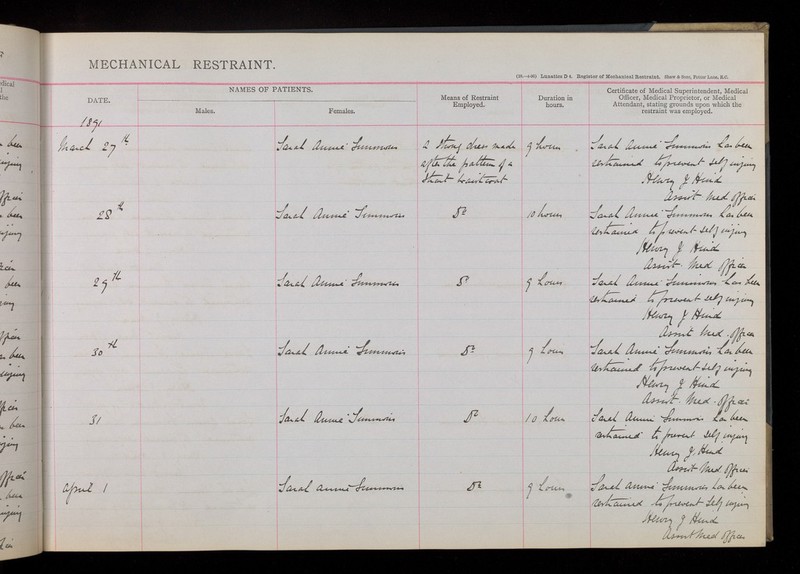 MECHANICAL RESTRAINT.
Lunatics D 4. Register of Mechanical Restraint. Shaw & Sons, Fetter Lane, E.C.
DATE.
NAMES OF PATIENTS.
Males.
Females.
Means of Restraint
Employed.
Duration in
hours.
Certificate of Medical Superintendent, Medical
Officer, Medical Proprietor, or Medical
Attendant, stating grounds upon which the
restraint was employed.
1891
March 27th Sarah Annie Simmons 2 Strong dress made 9 hours Sarah Annie Simmons has been
after the pattern of a restrained to prevent self injury
Strait waistcoat Henry J Hind
Assist Med Officer
28th Sarah Annie Simmons Do 10 hours Sarah Annie Simmons has been
restrained to prevent self injury
Henry J Hind
Assist Med Officer
29th Sarah Annie Simmons Do 9 hours Sarah Annie Simmons has been
restrained to prevent self injury
Henry J Hind
Assist Med. Officer
30th Sarah Annie Simmons Do 9 hours Sarah Annie Simmons has been
restrained to prevent self injury
Henry J Hind
Assist. Med. Officer
31 Sarah Annie Simmons Do 10 hours Sarah Annie Simmons has been
restrained to prevent self injury
Henry J. Hind
Assist Med Officer
April 1 Sarah Annie Simmons Do 9 hours Sarah Annie Simmons has been
restrained to prevent self injury
Henry J Hind
Assist Med Officer